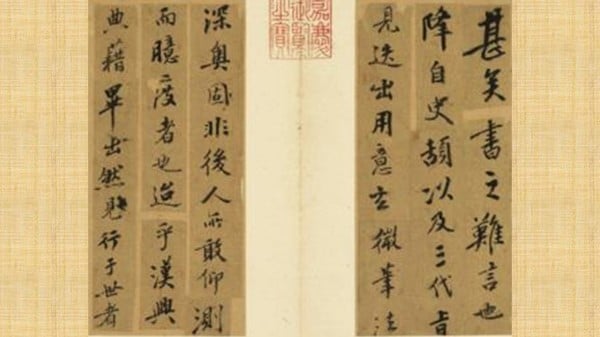 甚矣書之難言也
降自史頡以及三代旨
見迭出用意玄微筆法
嘉慶
御覽
之寶
深奧固非後人所敢仰測
而臆度者也迨乎漢興
典藉畢出然見行于世者